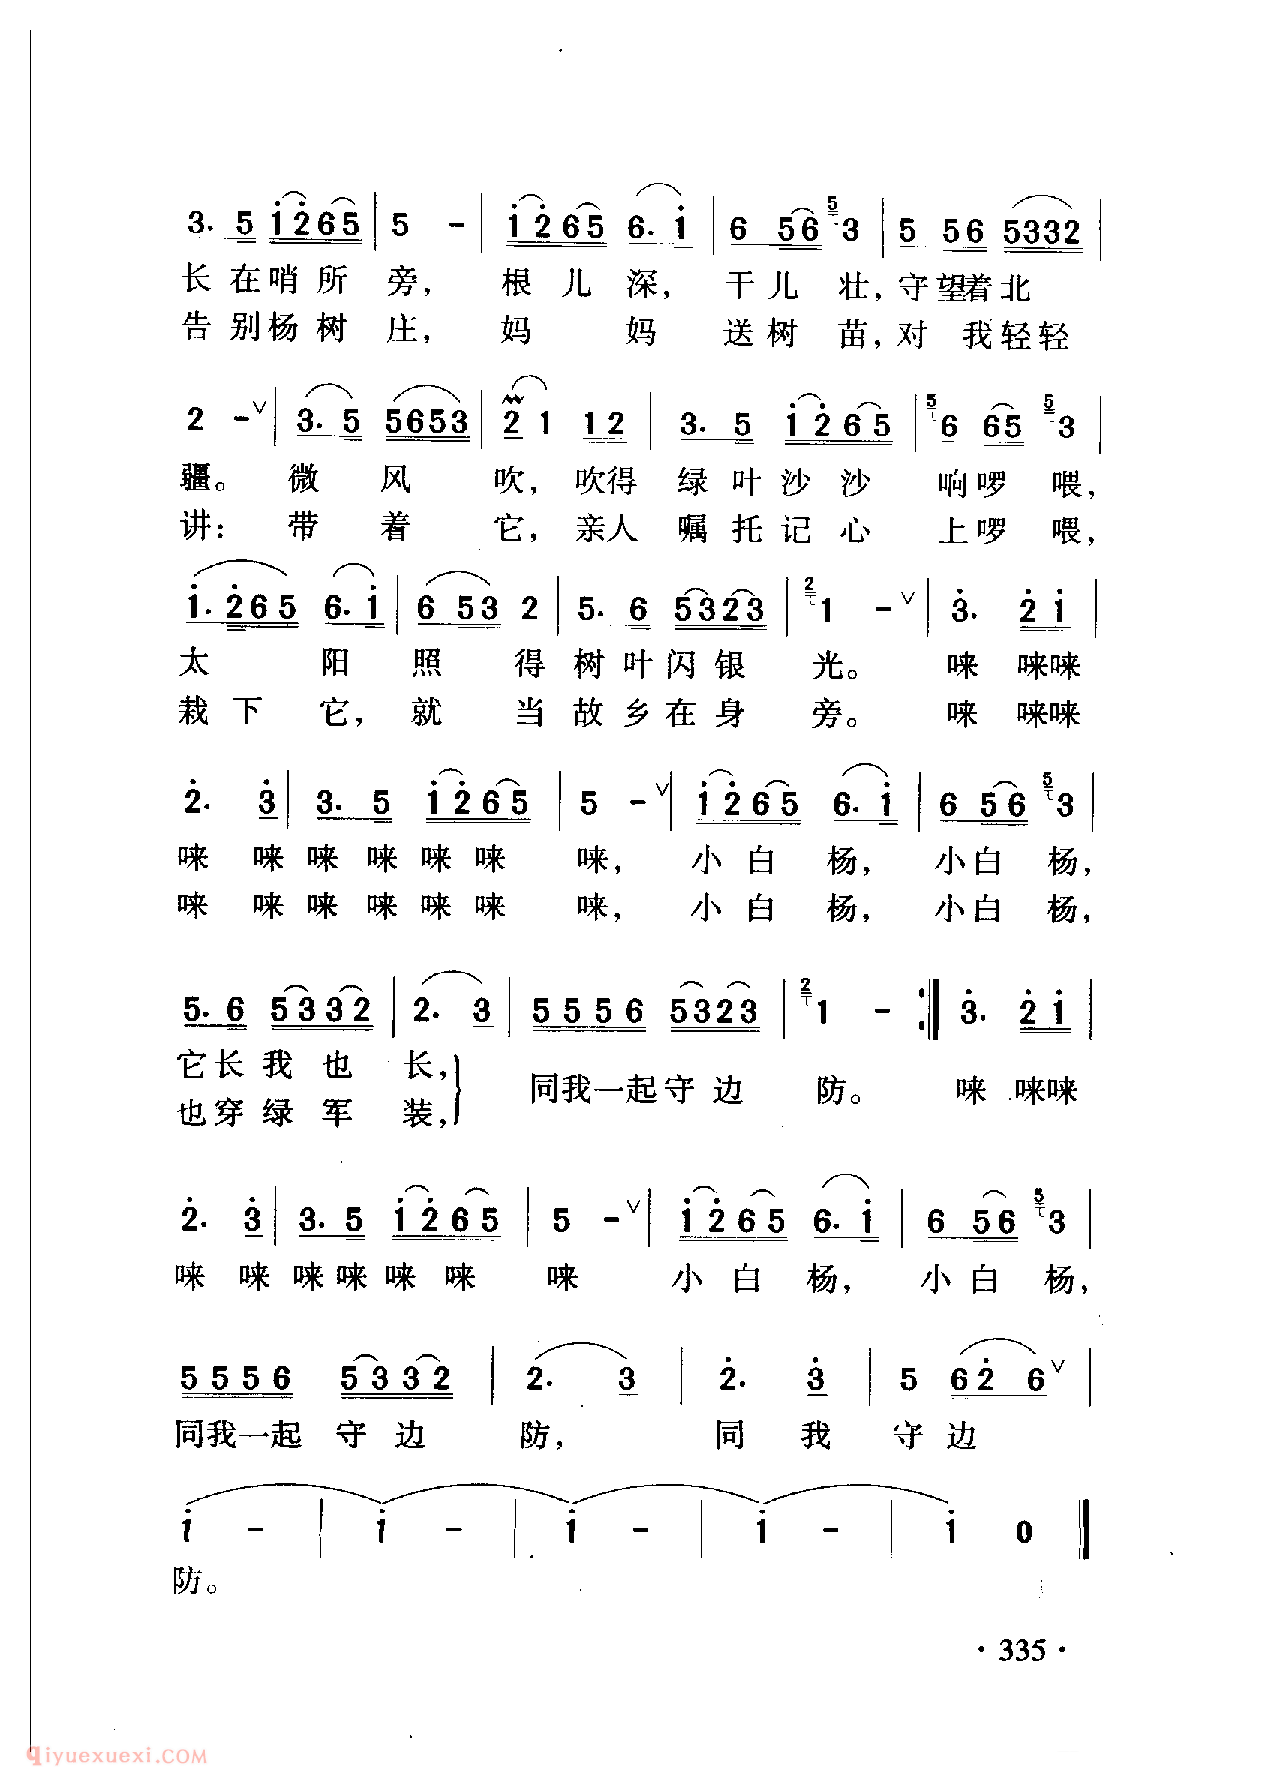 3. 5 1 2 6 5 | 5 - | 1 2 6 5 6. 1 | 6 5 6 5 3 | 5 5 6 5 3 3 2 |
长在哨所 旁， 根儿深， 干儿 壮，守望着北
告别杨树 庄， 妈 妈 送树 苗，对 我轻轻
2 - ∨ | 3. 5 5 6 5 3 | 2 1 1 2 | 3. 5 1 2 6 5 | 5 6 6 5 5 3 |
疆。 微 风 吹， 吹得 绿叶沙沙 响啰 喂，
讲： 带 着 它， 亲人 嘱托记心 上啰 喂，
1. 2 6 5 6. 1 | 6 5 3 2 | 5. 6 5 3 2 3 | 2 1 - ∨ | 3. 2 1 |
太 阳 照 得 树叶闪银 光。 唻 唻唻
栽下 它， 就 当 故乡在身 旁。 唻 唻唻
2. 3 | 3. 5 1 2 6 5 | 5 - ∨ | 1 2 6 5 6. 1 | 6 5 6 5 3 |
唻 唻 唻 唻 唻 唻 唻， 小白 杨， 小白 杨，
唻 唻 唻 唻 唻 唻 唻， 小白 杨， 小白 杨，
5. 6 5 3 3 2 | 2. 3 | 5 5 5 6 5 3 2 3 | 2 1 - :| 3. 2 1 |
它长我 也 长，
同我一起守边 防。 唻 唻唻
也穿绿 军 装，
2. 3 | 3. 5 1 2 6 5 | 5 - ∨ | 1 2 6 5 6. 1 | 6 5 6 5 3 |
唻 唻 唻唻唻 唻 唻 小白 杨， 小白 杨，
5 5 5 6 5 3 3 2 | 2. 3 | 2. 3 | 5 6 2 6 ∨ |
同我一起 守边 防， 同 我 守边
1 - | 1 - | 1 - | 1 - | 1 0 ‖
防。
· 335 ·
qiyuexuexi.COM